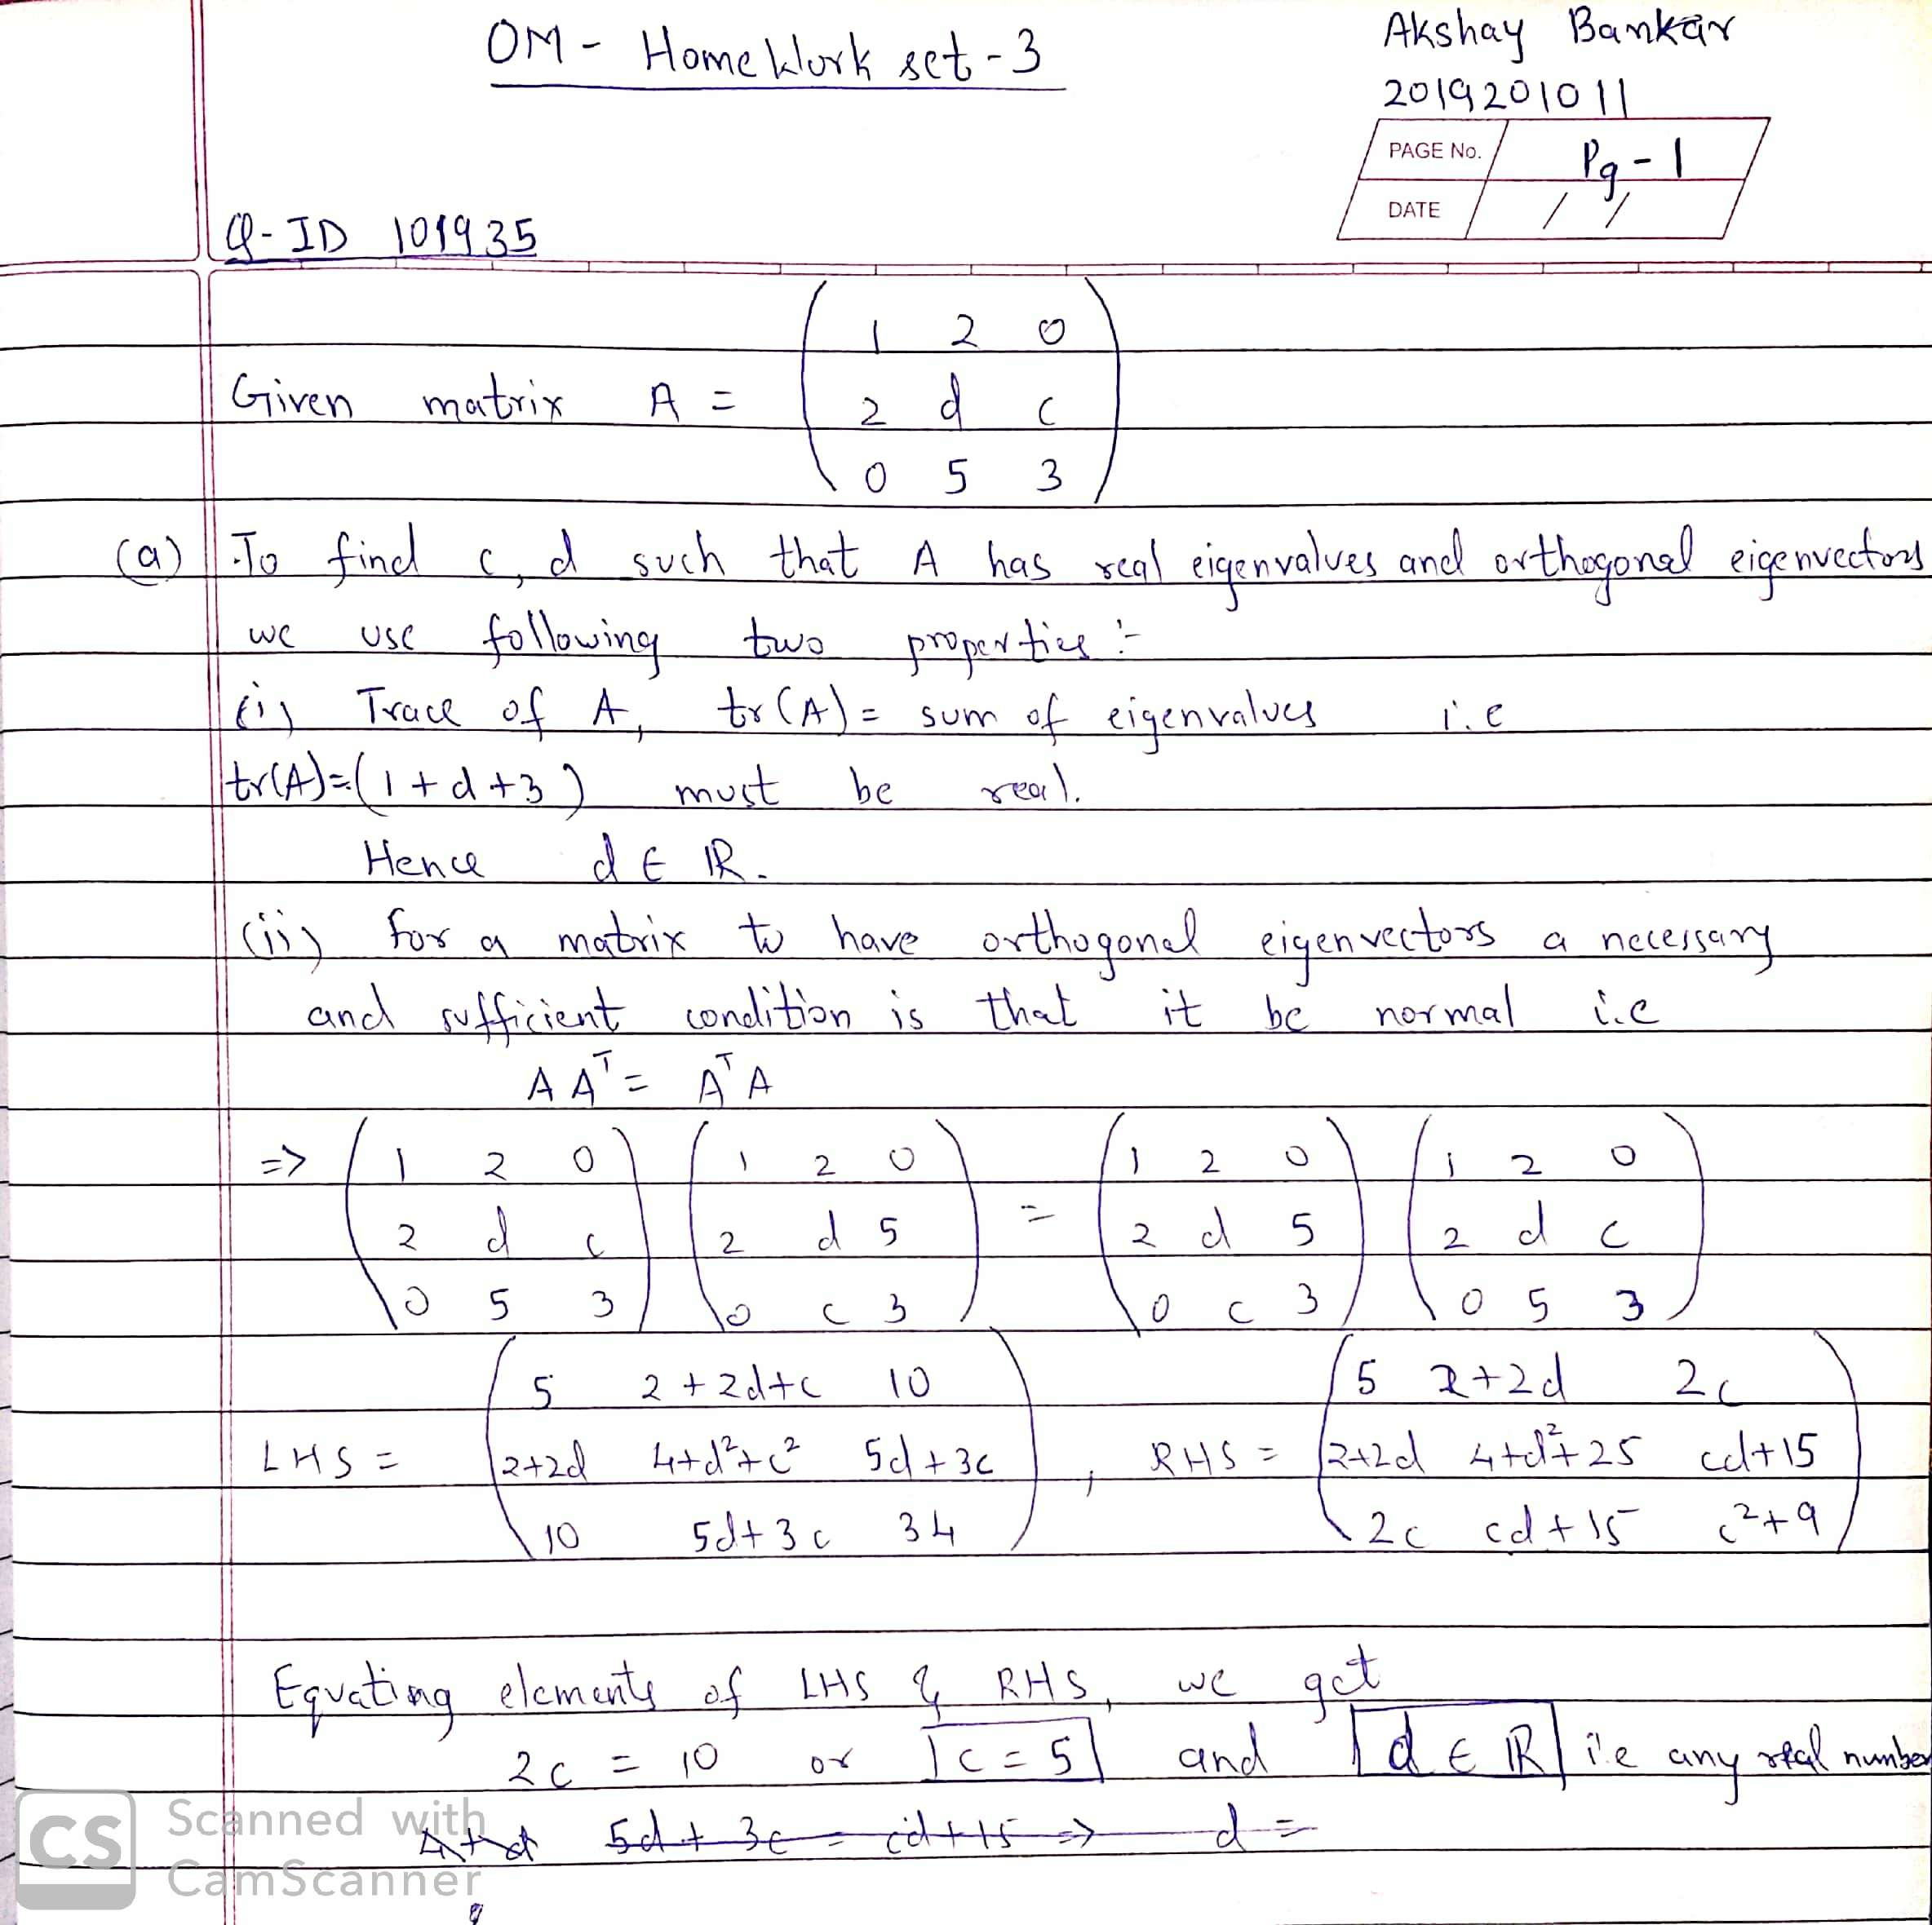 OM - HomeWork set-3
Akshay Bankar
2019201011
PAGE No. Pg-1
DATE / /
Q-ID 101935
1 2 0
Given matrix A = 2 d c
0 5 3
(a) To find c, d such that A has real eigenvalues and orthogonal eigenvectors
we use following two properties :-
(i) Trace of A, tr(A) = sum of eigenvalues i.e
tr(A)=(1+d+3) must be real.
Hence d ∈ ℝ.
(ii) For a matrix to have orthogonal eigenvectors a necessary
and sufficient condition is that it be normal i.e
A Aᵀ = Aᵀ A
=> 1 2 0 1 2 0 1 2 0 1 2 0
2 d c 2 d 5 = 2 d 5 2 d c
0 5 3 0 c 3 0 c 3 0 5 3
5 2+2d+c 10 5 2+2d 2c
LHS = 2+2d 4+d²+c² 5d+3c , RHS = 2+2d 4+d²+25 cd+15
10 5d+3c 34 2c cd+15 c²+9
Equating elements of LHS & RHS, we get
2c = 10 or c = 5 and d ∈ ℝ i.e any real number
5d + 3c = cd+15 => d =
CS Scanned with
CamScanner